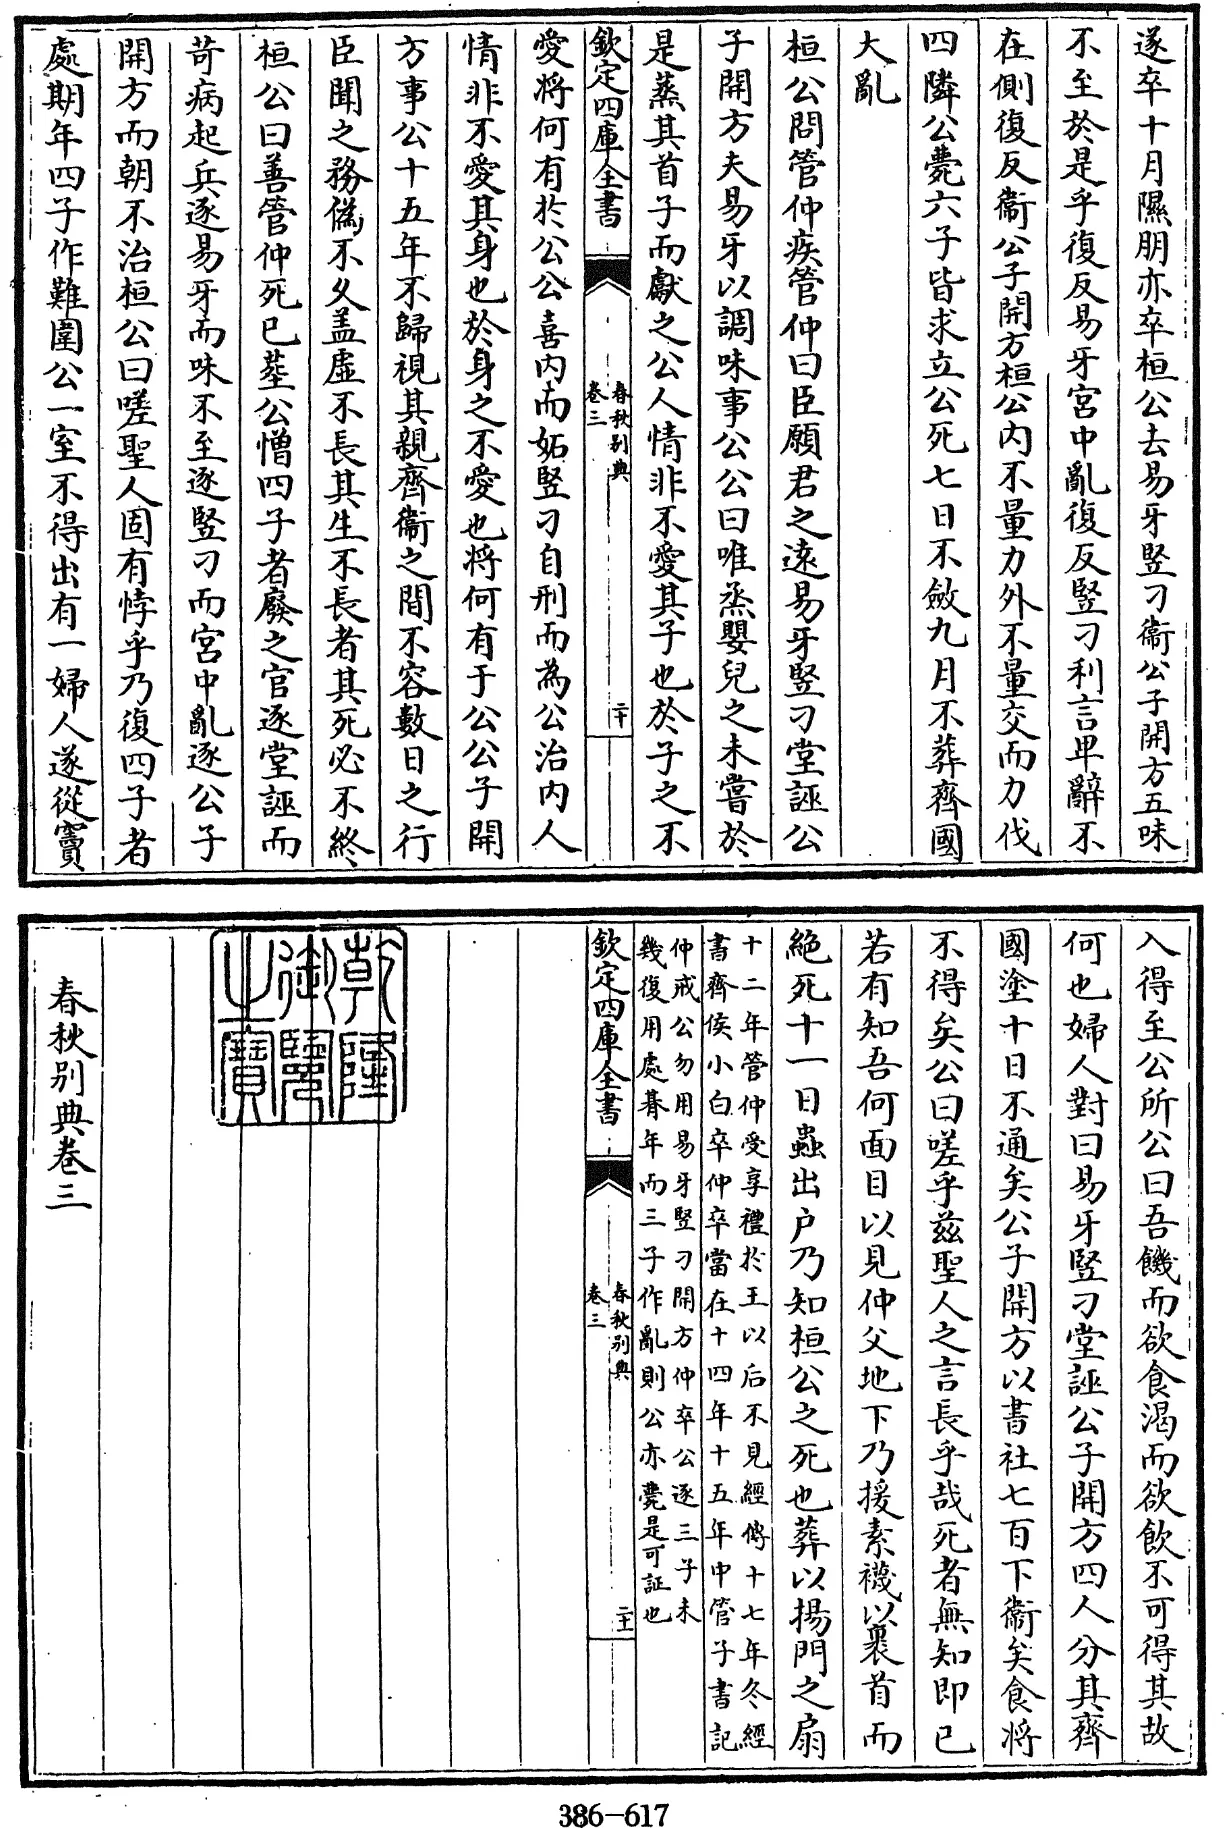 遂卒十月隰朋亦卒桓公去易牙竪刁衞公子開方五味
不至於是乎復反易牙宮中亂復反竪刁利言卑辭不
在側復反衞公子開方桓公内不量力外不量交而力伐
四隣公薨六子皆求立公死七日不斂九月不葬齊國
大亂
桓公問管仲疾管仲曰臣願君之遠易牙竪刁堂誣公
子開方夫易牙以調味事公公曰唯烝嬰兒之未嘗於
是蒸其首子而獻之公人情非不愛其子也於子之不
欽定四庫全書
春秋别典
卷三
二十
愛将何有於公公喜内而妬竪刁自刑而為公治内人
情非不愛其身也於身之不愛也将何有于公公子開
方事公十五年不歸視其親齊衞之間不容數日之行
臣聞之務僞不久盖虚不長其生不長者其死必不終
桓公曰善管仲死已塟公憎四子者廢之官逐堂誣而
苛病起兵逐易牙而味不至逐竪刁而宮中亂逐公子
開方而朝不治桓公曰嗟聖人固有悖乎乃復四子者
處期年四子作難圍公一室不得出有一婦人遂從竇
入得至公所公曰吾饑而欲食渴而欲飲不可得其故
何也婦人對曰易牙竪刁堂誣公子開方四人分其齊
國塗十日不通矣公子開方以書社七百下衞矣食将
不得矣公曰嗟乎兹聖人之言長乎哉死者無知即已
若有知吾何面目以見仲父地下乃援素襪以裹首而
絶死十一日蟲出户乃知桓公之死也葬以揚門之扇
十二年管仲受享禮於王以后不見經傳十七年冬經
書齊侯小白卒仲卒當在十四年十五年中管子書記
仲戒公勿用易牙竪刁開方仲卒公逐三子未
幾復用處朞年而三子作亂則公亦薨是可証也
欽定四庫全書
春秋别典
卷三
二十一
乾隆
御覽
之寶
春秋别典卷三
386-617